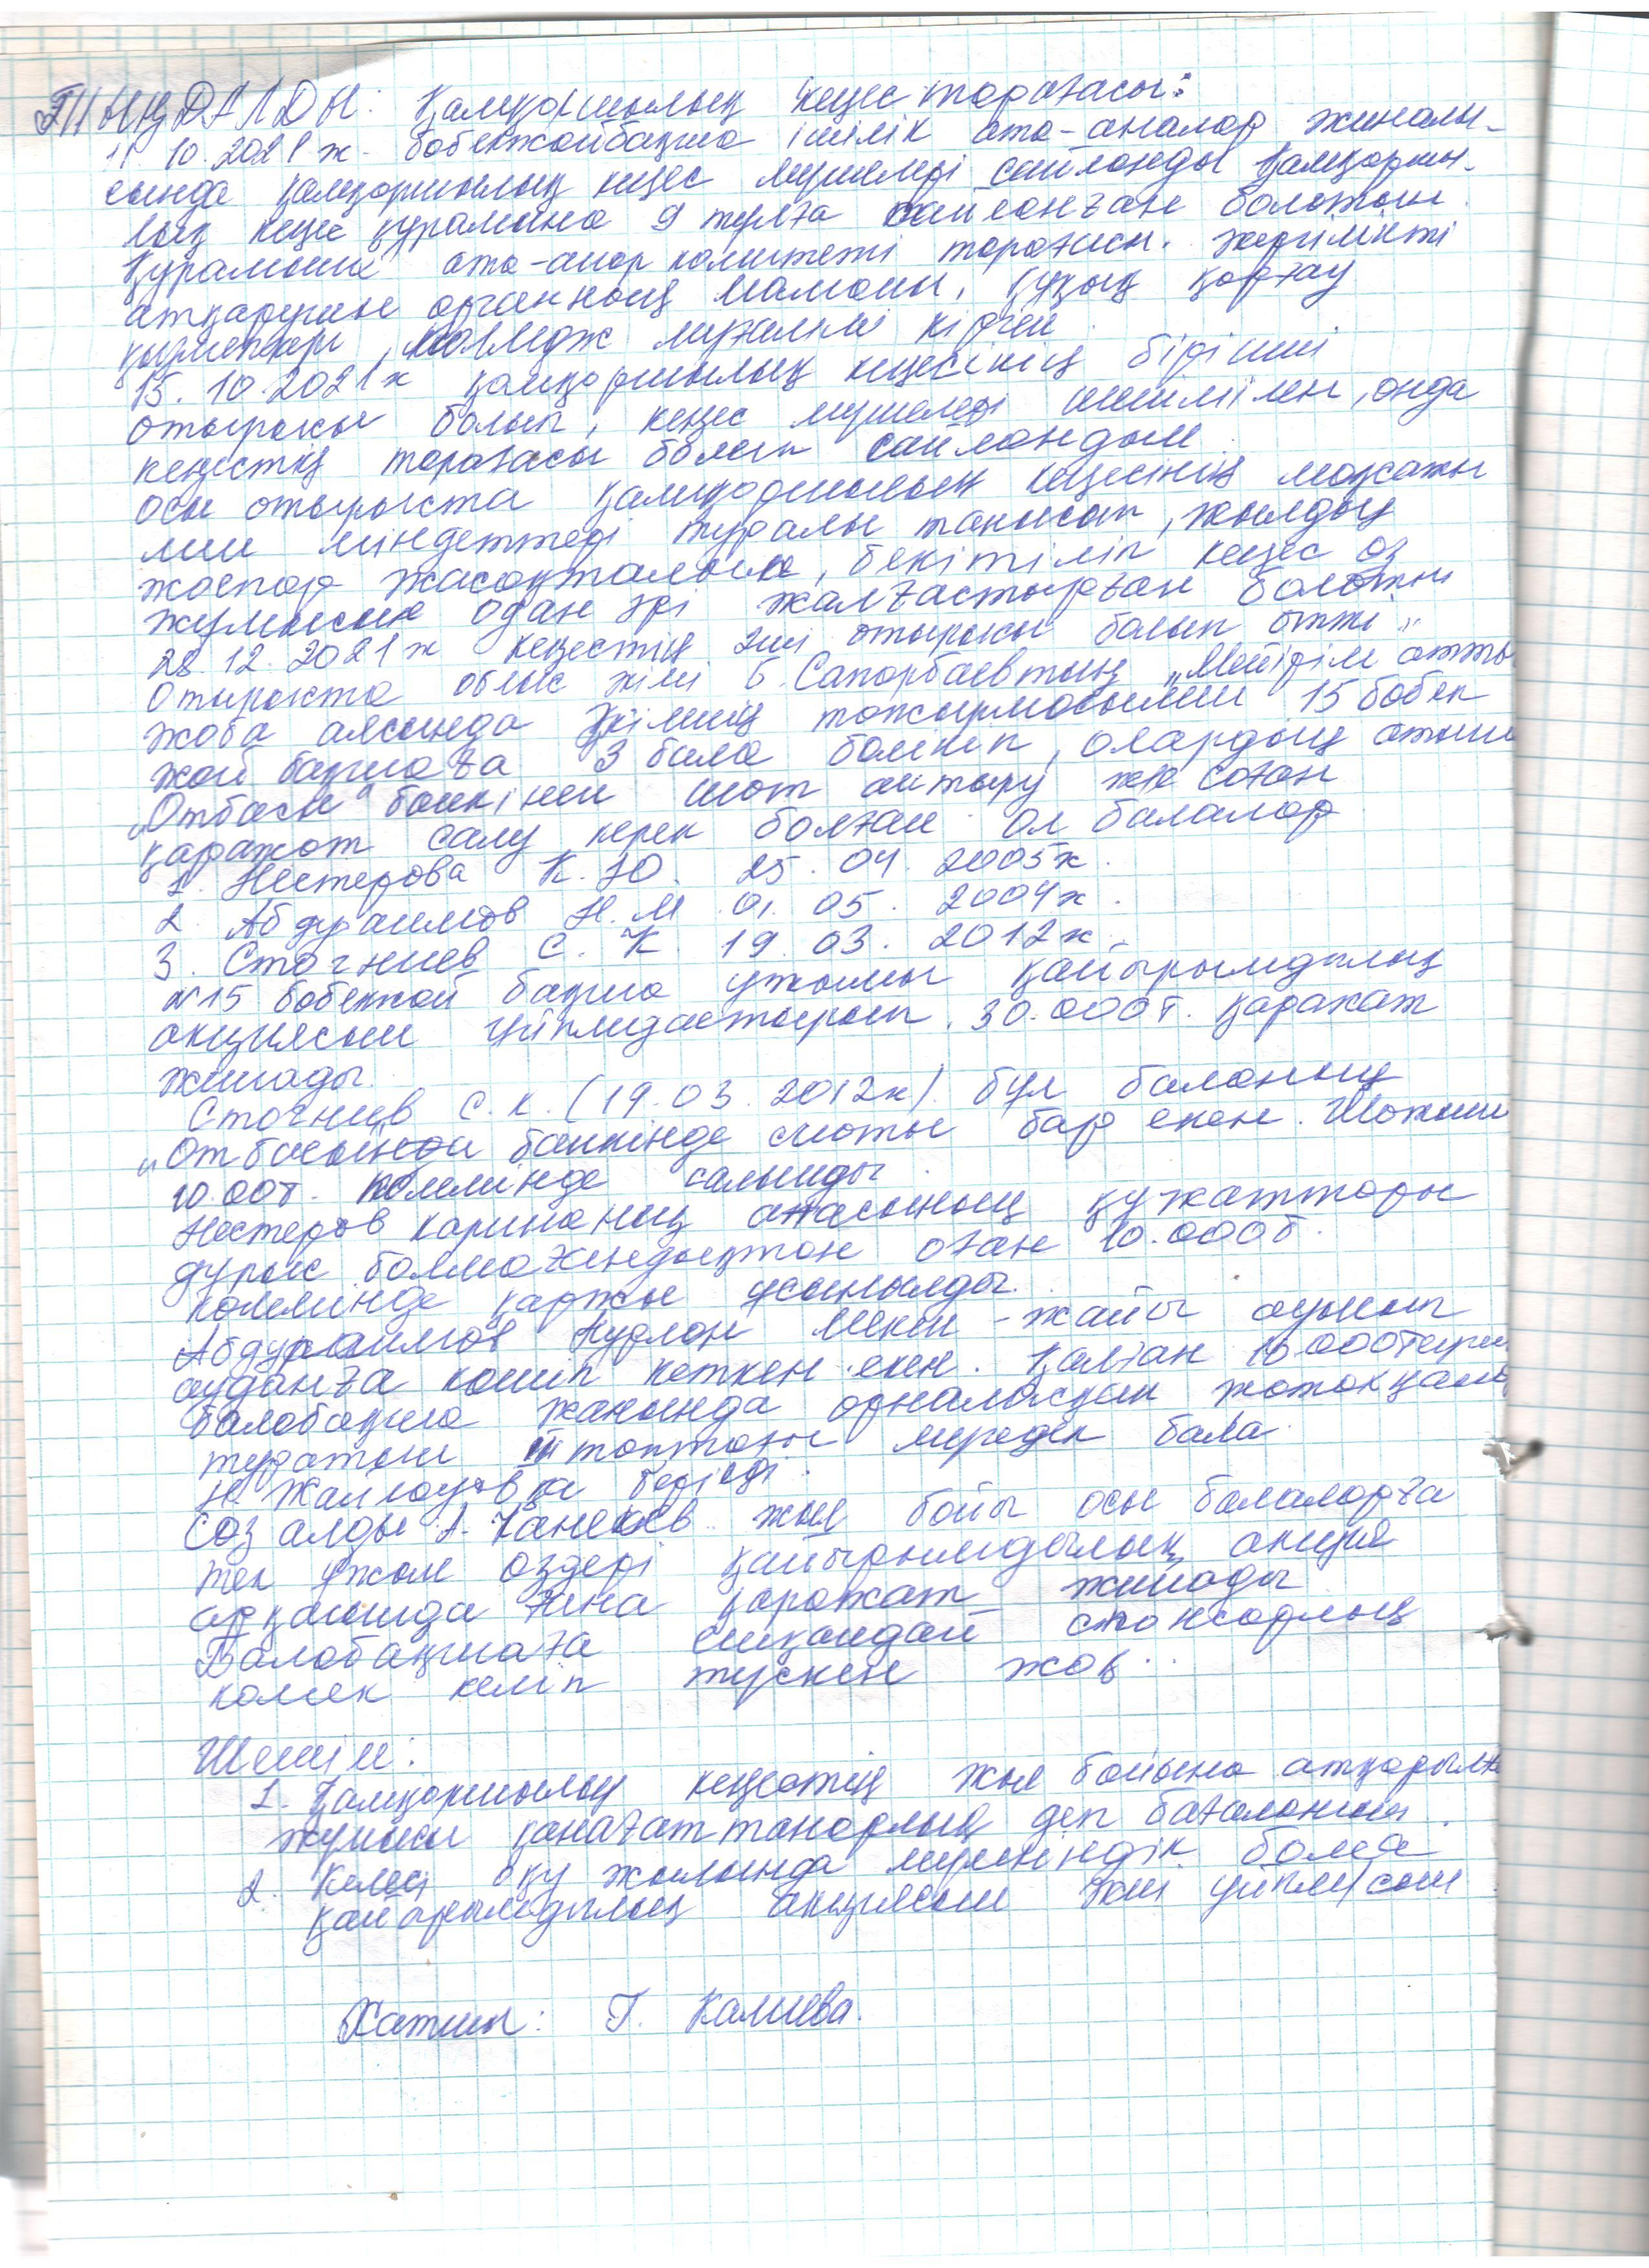 ТЫҢДАЛДЫ: Қамқоршылық кеңес төрағасы:
11.10.2021 ж. бөбекжайбақша ішілік ата-аналар жиналы-
сында қамқоршылық кеңес мүшелері сайланды Қамқоршы-
лық кеңес құрамына 9 тұлға сайланған болатын.
Құрамына ата-анар комитеті төрағасы. жергілікті
атқарушы органның маманы, құқық қорғау
қызметкері, колледж мұғалімі кірген.
15.10.2021ж қамқоршылық кеңесінің бірінші
отырысы болып, кеңес мүшелері шешімімен, онда
кеңестің төрағасы болып сайландым.
Осы отырыста қамқоршылық кеңесінің мақсаты
мен міндеттері туралы танысып, жылдық
жоспар жасақталып, бекітіліп кеңес өз
жұмысын одан әрі жалғастырған болатын
28.12.2021ж кеңестің 2ші отырысы болып өтті.
Отырыста облыс әкімі Б.Сапарбаевтың „Мейірім атты
жоба аясында әкімнің тапсырмасымен 15 бөбек
жай бақшаға 3 бала бөлініп, олардың атына
„Отбасы" банкінен шот аштыру және соған
қаражат салу керек болған. Ол балалар
1. Нестерова К.Ю. 25.04.2005ж.
2. Абдраимов Н.М 01.05.2004ж.
3. Стогниев С.К. 19.03.2012ж.
№15 бөбекжай бақша ұжымы қайырымдылық
акциясын ұйымдастырып. 30.000т. қаражат
жинады.
Стогниев С.К. (19.03.2012ж). бұл баланың
„Отбасының банкінде счоты бар екен. Шотына
10.00т. көлемінде салынды.
Нестеров Каринаның анасының құжаттары
дұрыс болмағындықтан оған 10.000т.
көлемінде қаржы ұсынылды.
Абдураимов Нұрлан мекен-жайы ауысып
ауданға көшіп кеткен екен. Қалған 10.000теңге
балабақша жанында орналасқан жатақханада
тұратын ІІІ топтағы мүгедек бала
Н. берілді.
Сөз алды А. жыл бойы осы балаларға
тек ұжым өздері қайырымдылық акция
арқылы ғана қаражат жинады.
Балабақшаға ешқандай спонсорлық
көмек келіп түскен жоқ..
Шешім:
1. Қамқоршылық кеңестің жыл бойына атқарылған
жұмысы қанағаттанарлық деп бағалансын.
2. Келесі оқу жылында мүмкіндік болса
қайырымдылық акциясын
Хатшы: Г. Калиева.